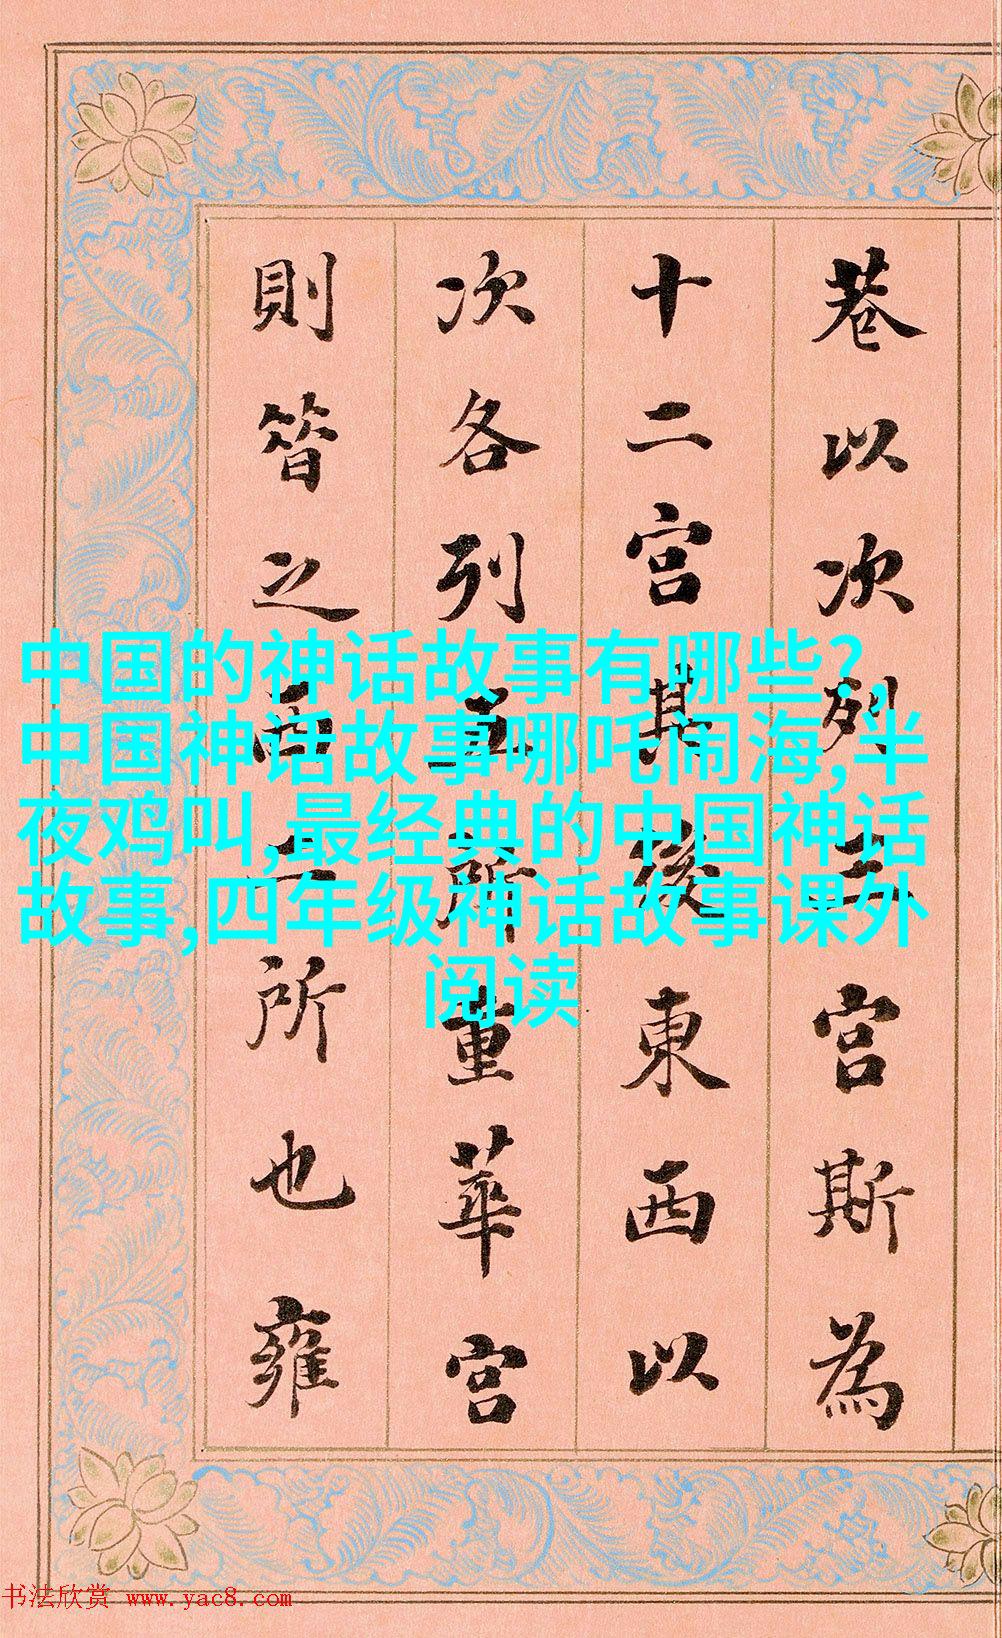 中国的神话故事有哪些?,
中国神话故事哪吒闹海,半
夜鸡叫,最经典的中国神话
故事,四年级神话故事课外
阅读
巷以次列三宮斯為
十二宮其後東西以
次各列五所重華宮
則㫺之西二所也雍
书法欣赏 www.yac8.com